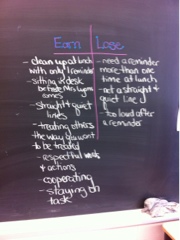 Earn
- clean up at bell
with only 1 reminder
- sitting @ desk
before Mrs.
comes
- straight & quiet
lines
- treating others
the way you want
to be treated
- respectful words
& actions
- cooperating
- staying on
task
Lose
- need a reminder
more than one
time at lunch
- not a straight &
quiet line
- too loud after
a reminder